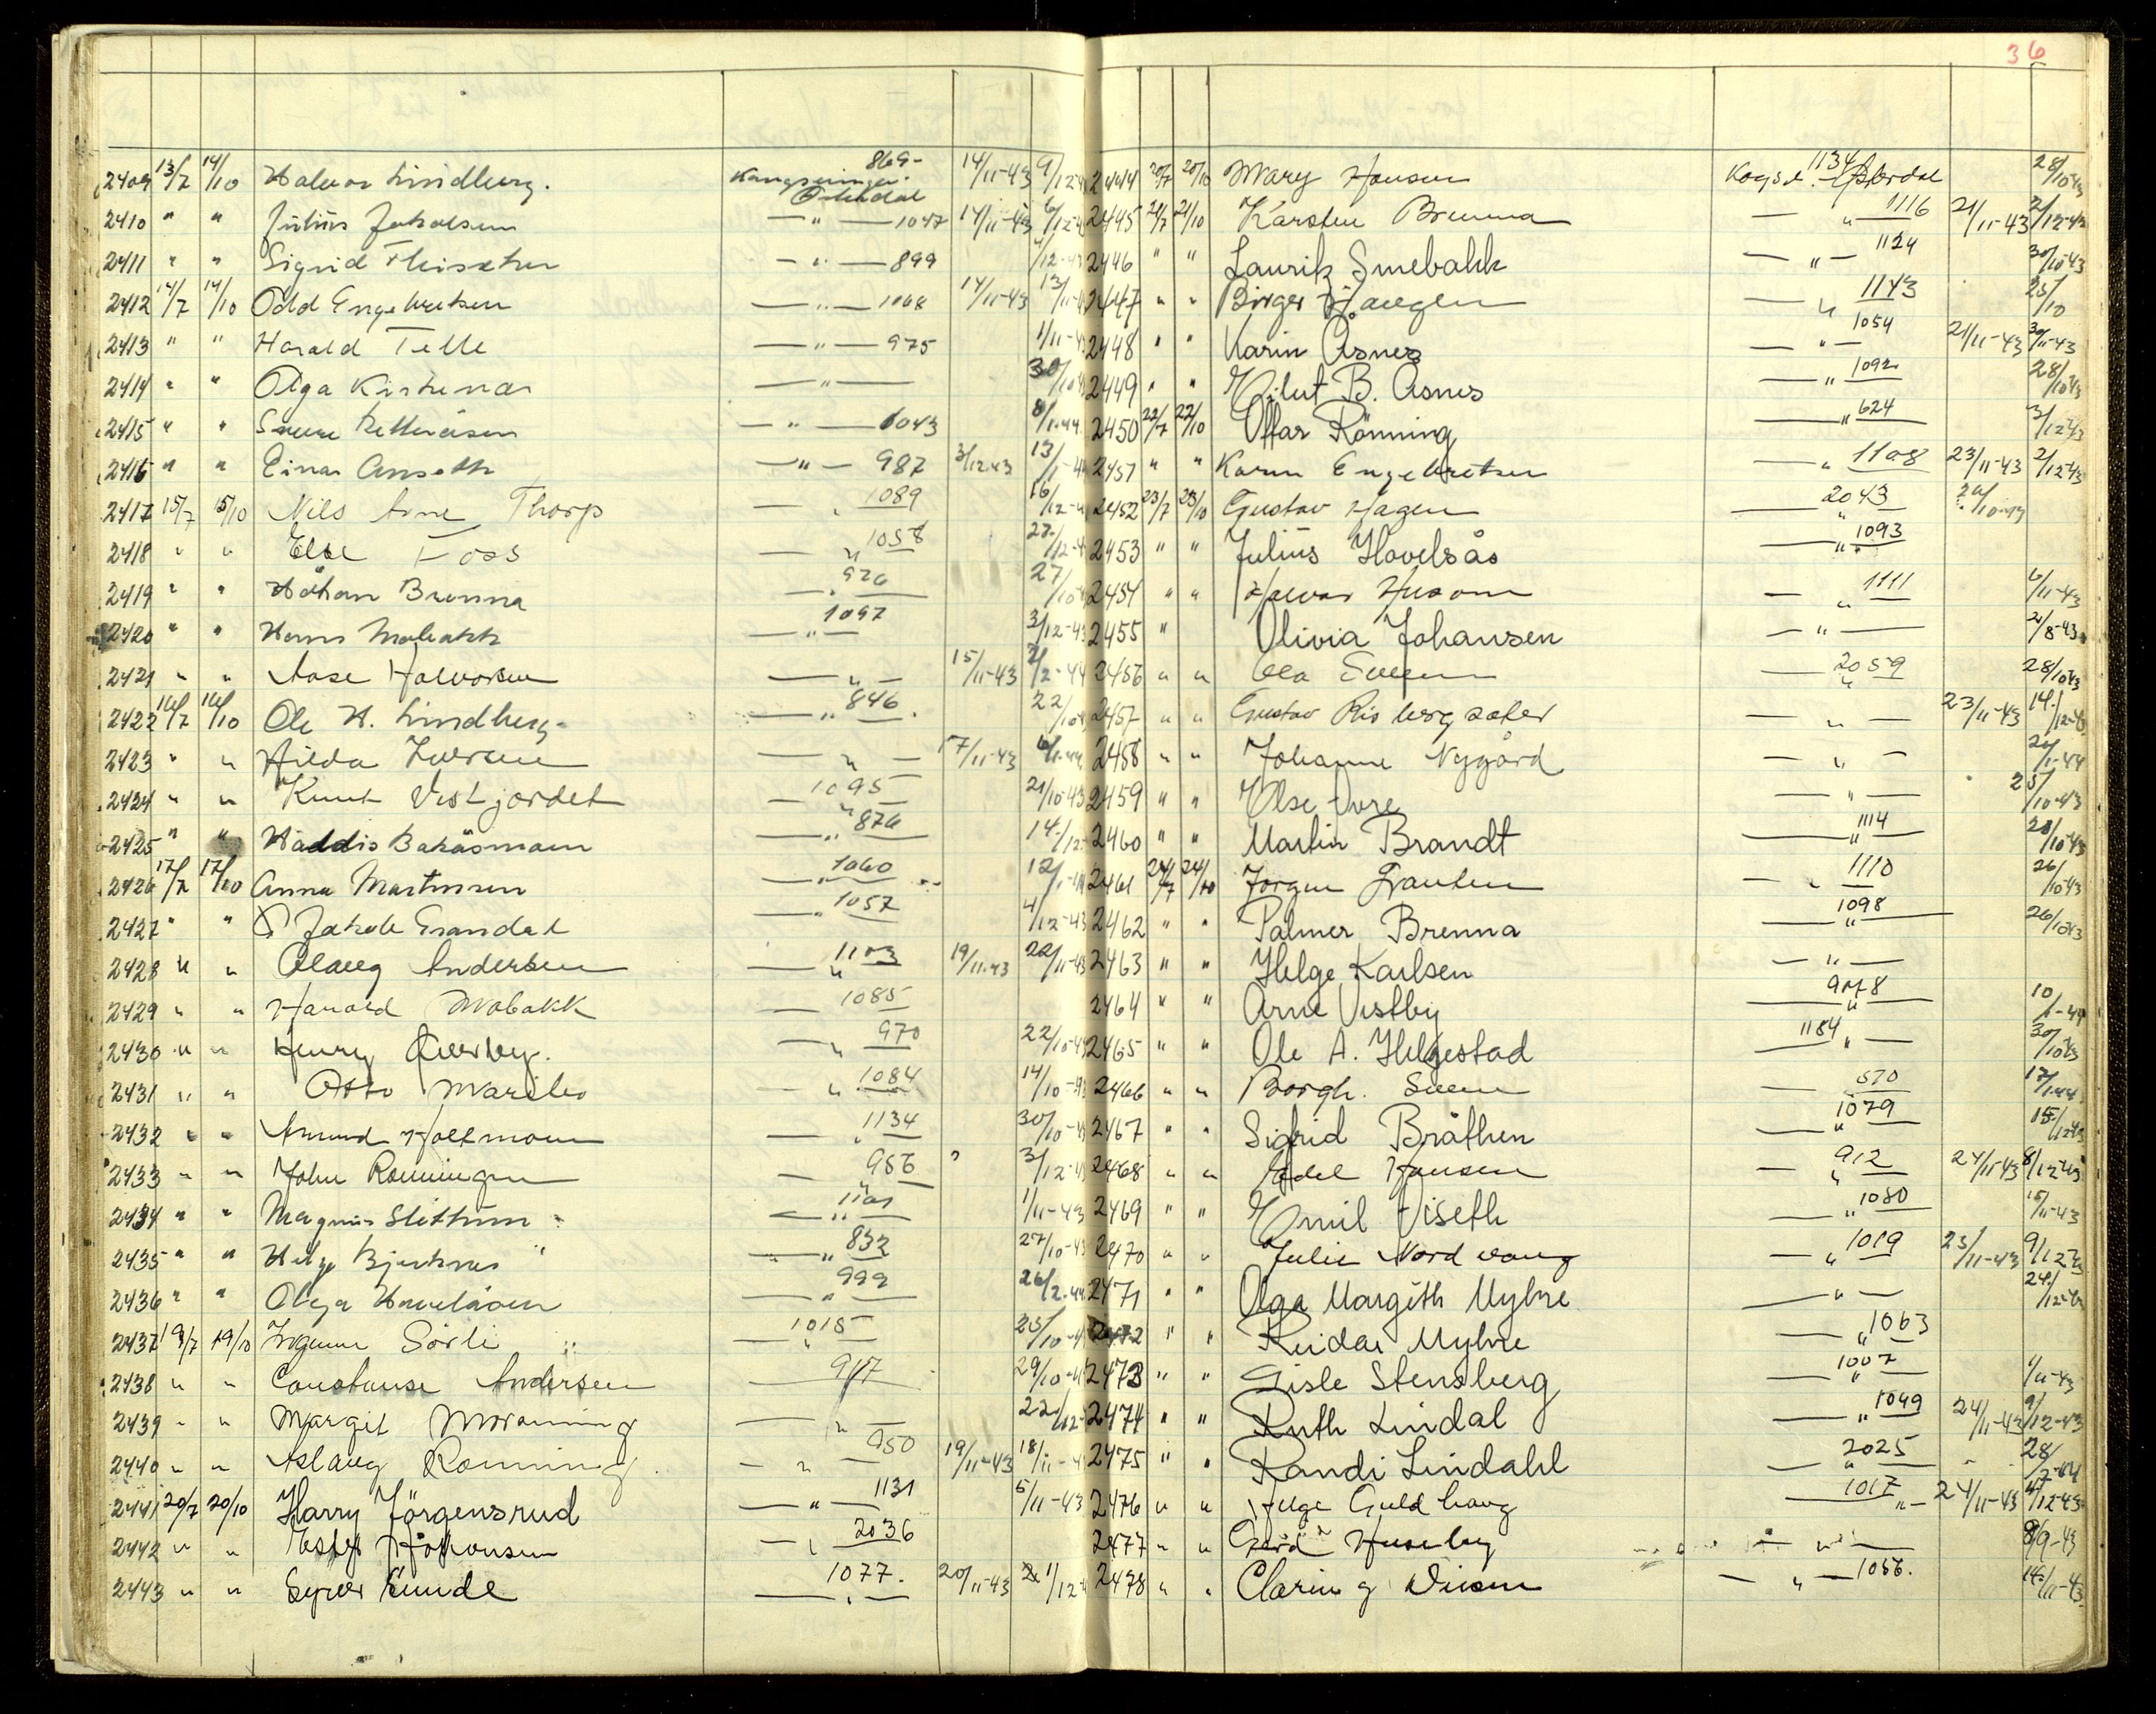 36
2409 13/7 14/10 Halvor Lindberg. Kongsvinger Österdal 869- 14/11-43 9/12-4
2410 " " Julius Jakobsen — " — 1047 14/11-43 6/12-4
2411 " " Sigrid Fleischer — " — 899 /12-43
2412 14/7 14/10 Odd Engebretsen — " — 1068 14/11-43 13/11-4
2413 " " Harald Telle — " — 975 1/11-4
2414 " " Olga Kirkenær — " — 30/10-4
2415 " " — " — 1043 8/1-44
2416 " " Einar Anseth — " — 987 3/12-43 13/1-4
2417 15/7 15/10 Nils Arne Thorp — " — 1089 16/12-4
2418 " " Else Foss — " — 1058 22/12-4
2419 " " Håkon Brenna — " — 926 27/10-4
2420 " " Hans Mobakk — " — 1097 3/12-43
2421 " " Aase Halvorsen — " — 15/11-43 2/2-44
2422 16/7 16/10 Ole H. Lindberg — " — 846 22/10-4
2423 " " Hilda Iversen — " — 17/11-43 6/1-44
2424 " " Knut Vestjordet — " — 1095 21/10-43
2425 " " Haddis Bakåsmoen — " — 876 14/12-
2426 17/7 17/10 Anna Martinsen — " — 1060 12/1-44
2427 " " Jakob Grandal — " — 1057 4/12-43
2428 " " Olaug Andersen — " — 1103 19/11-43 22/11-43
2429 " " Harald Mobakk — " — 1085
2430 " " Henry Överby. — " — 970 22/10-43
2431 " " Otto Marilo — " — 1084 14/10-43
2432 " " Amund Holtmoen — " — 1134 30/10-43
2433 " " John Rönningen — " — 956 3/12-4
2434 " " Magnus Slettum — " — 1101 1/11-43
2435 " " Helge Bjerknes — " — 832 27/10-43
2436 " " Olga Hovelsåsen — " — 999 26/2-44
2437 19/7 19/10 Ingunn Sörli — " — 1015 25/10-4
2438 " " Constanse Andersen — 917 29/10-4
2439 " " Margit — " — 22/12-
2440 " " Aslaug Rönning — " — 950 19/11-43 18/11-4
2441 20/7 20/10 Harry Jörgensrud — " — 1131 5/11-43
2442 " " Ester Håkonsen — " — 2036
2443 " " Syver Lunde — " — 1077. 20/11-43 1/12-4
2444 20/7 20/10 Mary Hansen Kogsv. - Österdal 1134 28/10-43
2445 21/7 21/10 Karsten Brenna — " — 1116 21/11-43 2/12-43
2446 " " Laurik Smebakk — " — 1124 30/10-43
2447 " " Birger Haugen — " — 1143 25/10
2448 " " Karin Åsnes — " — 1054 21/11-43 30/11-43
2449 " " Eilert B. Åsnes — " — 1092 28/10-43
2450 22/7 22/10 Ottar Rönning — " — 624 3/12-43
2451 " " Karen Engebretsen — " — 1108 23/11-43 2/12-43
2452 23/7 23/10 Gustav Hagen — " — 2043
2453 " " Julius Hovelsås — " — 1093
2454 " " Halvor Husom — " — 1111 6/11-43
2455 " Olivia Johansen — " — 2/8-43
2456 " " Ola — " — 2059 28/10-43
2457 " " Gustav Risbergsæter — " — 23/11-43 14/12-43
2458 " " Johanne Nygård — " — 20/1-44
2459 " " Else Ovre — " — 25/10-43
2460 " " Martin Brandt — " — 1114 28/10-43
2461 24/7 24/10 Jörgen Granlien — " — 1110 26/10-43
2462 " " Palmer Brenna — " — 1098 26/10-43
2463 " " Helge Karlsen — " —
2464 " " Arne Vestby — " — 9078 10/1-44
2465 " " Ole A. Helgestad 1184 — " — 30/10-43
2466 " " Borgh. Sveen — 870 17/1-44
2467 " " Sigfrid Bråthen — " — 1079 15/12-43
2468 " " Edel Hansen — " — 912 24/11-43 8/12-43
2469 " " Emil Viseth — " — 1080 15/11-43
2470 " " Julie Nordvang — " — 1019 23/11-43 9/12-43
2471 " " Olga Margith Myhre — " — 24/12-43
2472 " " Reidar Myhre — " — 1063
2473 " " Gisle Stensberg — " — 1007 1/11-43
2474 " " Ruth Lindal — " — 1049 24/11-43 9/12-43
2475 " " Randi Lindahl — " — 2025 28/7-44
2476 " " Helge Guldhaug — " — 1017 24/11-43 /12-43
2477 " " Gerd Huseby — " — 8/9-43
2478 " " Clarin g — " — 1056. 14/11-43